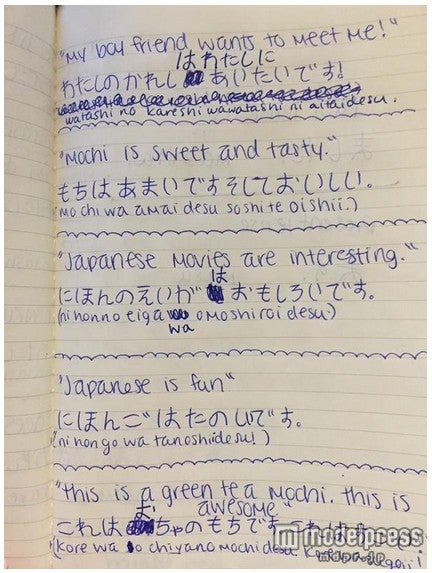 "My boy friend wants to meet me!"
はわたしに
わたしのかれし あいたいです!
watashi no kareshi wa watashi ni aitai desu.
"Mochi is sweet and tasty."
もちは あまいです そして おいしい。
(mochi wa amai desu soshite oishii.)
"Japanese movies are interesting."
は
にほんのえいが おもしろいです。
(ni hon no eiga omoshiroi desu.)
wa
"Japanese is fun"
にほんご はたのしいです。
(ni hon go wa tanoshii desu!)
"this is a green tea mochi. this is
お awesome"
これは ちゃのもちです
(kore wa o chiyano mochi desu.
modelpress
mdpr.jp